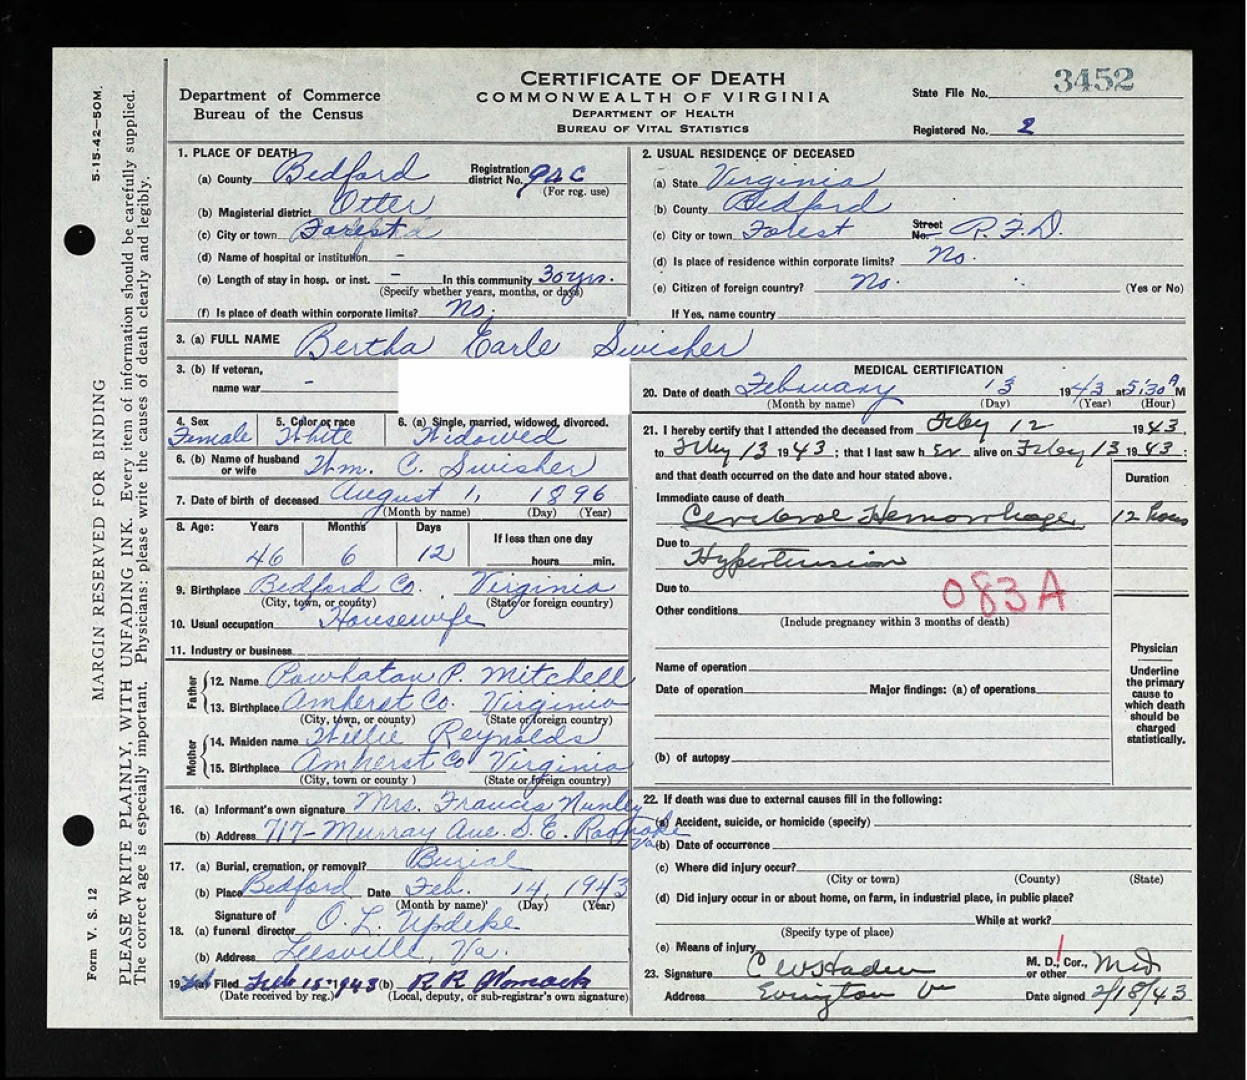 CERTIFICATE OF DEATH
COMMONWEALTH OF VIRGINIA
DEPARTMENT OF HEALTH
BUREAU OF VITAL STATISTICS
Department of Commerce
Bureau of the Census
State File No. 3452
Registered No. 2
5-15-42-50M.
MARGIN RESERVED FOR BINDING
Form V. S. 12
PLEASE WRITE PLAINLY, WITH UNFADING INK. Every item of information should be carefully supplied.
The correct age is especially important. Physicians: please write the causes of death clearly and legibly.
1. PLACE OF DEATH
(a) County Bedford Registration district No. 9
(For reg. use)
(b) Magisterial district Otter
(c) City or town Forest
(d) Name of hospital or institution -
(e) Length of stay in hosp. or inst. - In this community 30 yrs.
(Specify whether years, months, or days)
(f) Is place of death within corporate limits? No.
2. USUAL RESIDENCE OF DECEASED
(a) State Virginia
(b) County Bedford
(c) City or town Forest Street No. R.F.D.
(d) Is place of residence within corporate limits? No.
(e) Citizen of foreign country? No. (Yes or No)
If Yes, name country
3. (a) FULL NAME Bertha Earle Swisher
3. (b) If veteran, name war -
4. Sex Female
5. Color or race White
6. (a) Single, married, widowed, divorced. Widowed
6. (b) Name of husband or wife Wm. C. Swisher
7. Date of birth of deceased August 1, 1896
(Month by name) (Day) (Year)
8. Age: Years Months Days If less than one day
46 6 12 hours min.
9. Birthplace Bedford Co. Virginia
(City, town, or county) (State or foreign country)
10. Usual occupation Housewife
11. Industry or business
Father
12. Name Powhatan P. Mitchell
13. Birthplace Amherst Co. Virginia
(City, town, or county) (State or foreign country)
Mother
14. Maiden name Willie Reynolds
15. Birthplace Amherst Co Virginia
(City, town or county ) (State or foreign country)
16. (a) Informant's own signature Mrs. Frances Nunley
(b) Address 717- Murray Ave. S.E. Roanoke Va
17. (a) Burial, cremation, or removal? Burial
(b) Place Bedford Date Feb. 14, 1943
(Month by name) (Day) (Year)
18. (a) Signature of funeral director O. L. Updike
(b) Address Leesville, Va.
19. (a) Filed Feb 15 1943 (b) R R Womack
(Date received by reg.) (Local, deputy, or sub-registrar's own signature)
MEDICAL CERTIFICATION
20. Date of death February 13 1943 at 5:30 A M
(Month by name) (Day) (Year) (Hour)
21. I hereby certify that I attended the deceased from Feby 12 1943,
to Feby 13 1943; that I last saw her alive on Feby 13 1943;
and that death occurred on the date and hour stated above. Duration
Immediate cause of death
Cerebral Hemorrhage 12 hours
Due to Hypertension
Due to
083A
Other conditions
(Include pregnancy within 3 months of death)
Name of operation
Date of operation Major findings: (a) of operations
(b) of autopsy
Physician
Underline
the primary
cause to
which death
should be
charged
statistically.
22. If death was due to external causes fill in the following:
(a) Accident, suicide, or homicide (specify)
(b) Date of occurrence
(c) Where did injury occur?
(City or town) (County) (State)
(d) Did injury occur in or about home, on farm, in industrial place, in public place?
While at work?
(Specify type of place)
(e) Means of injury
23. Signature M. D., Cor., or other MD
Address Evington Va Date signed 2/18/43